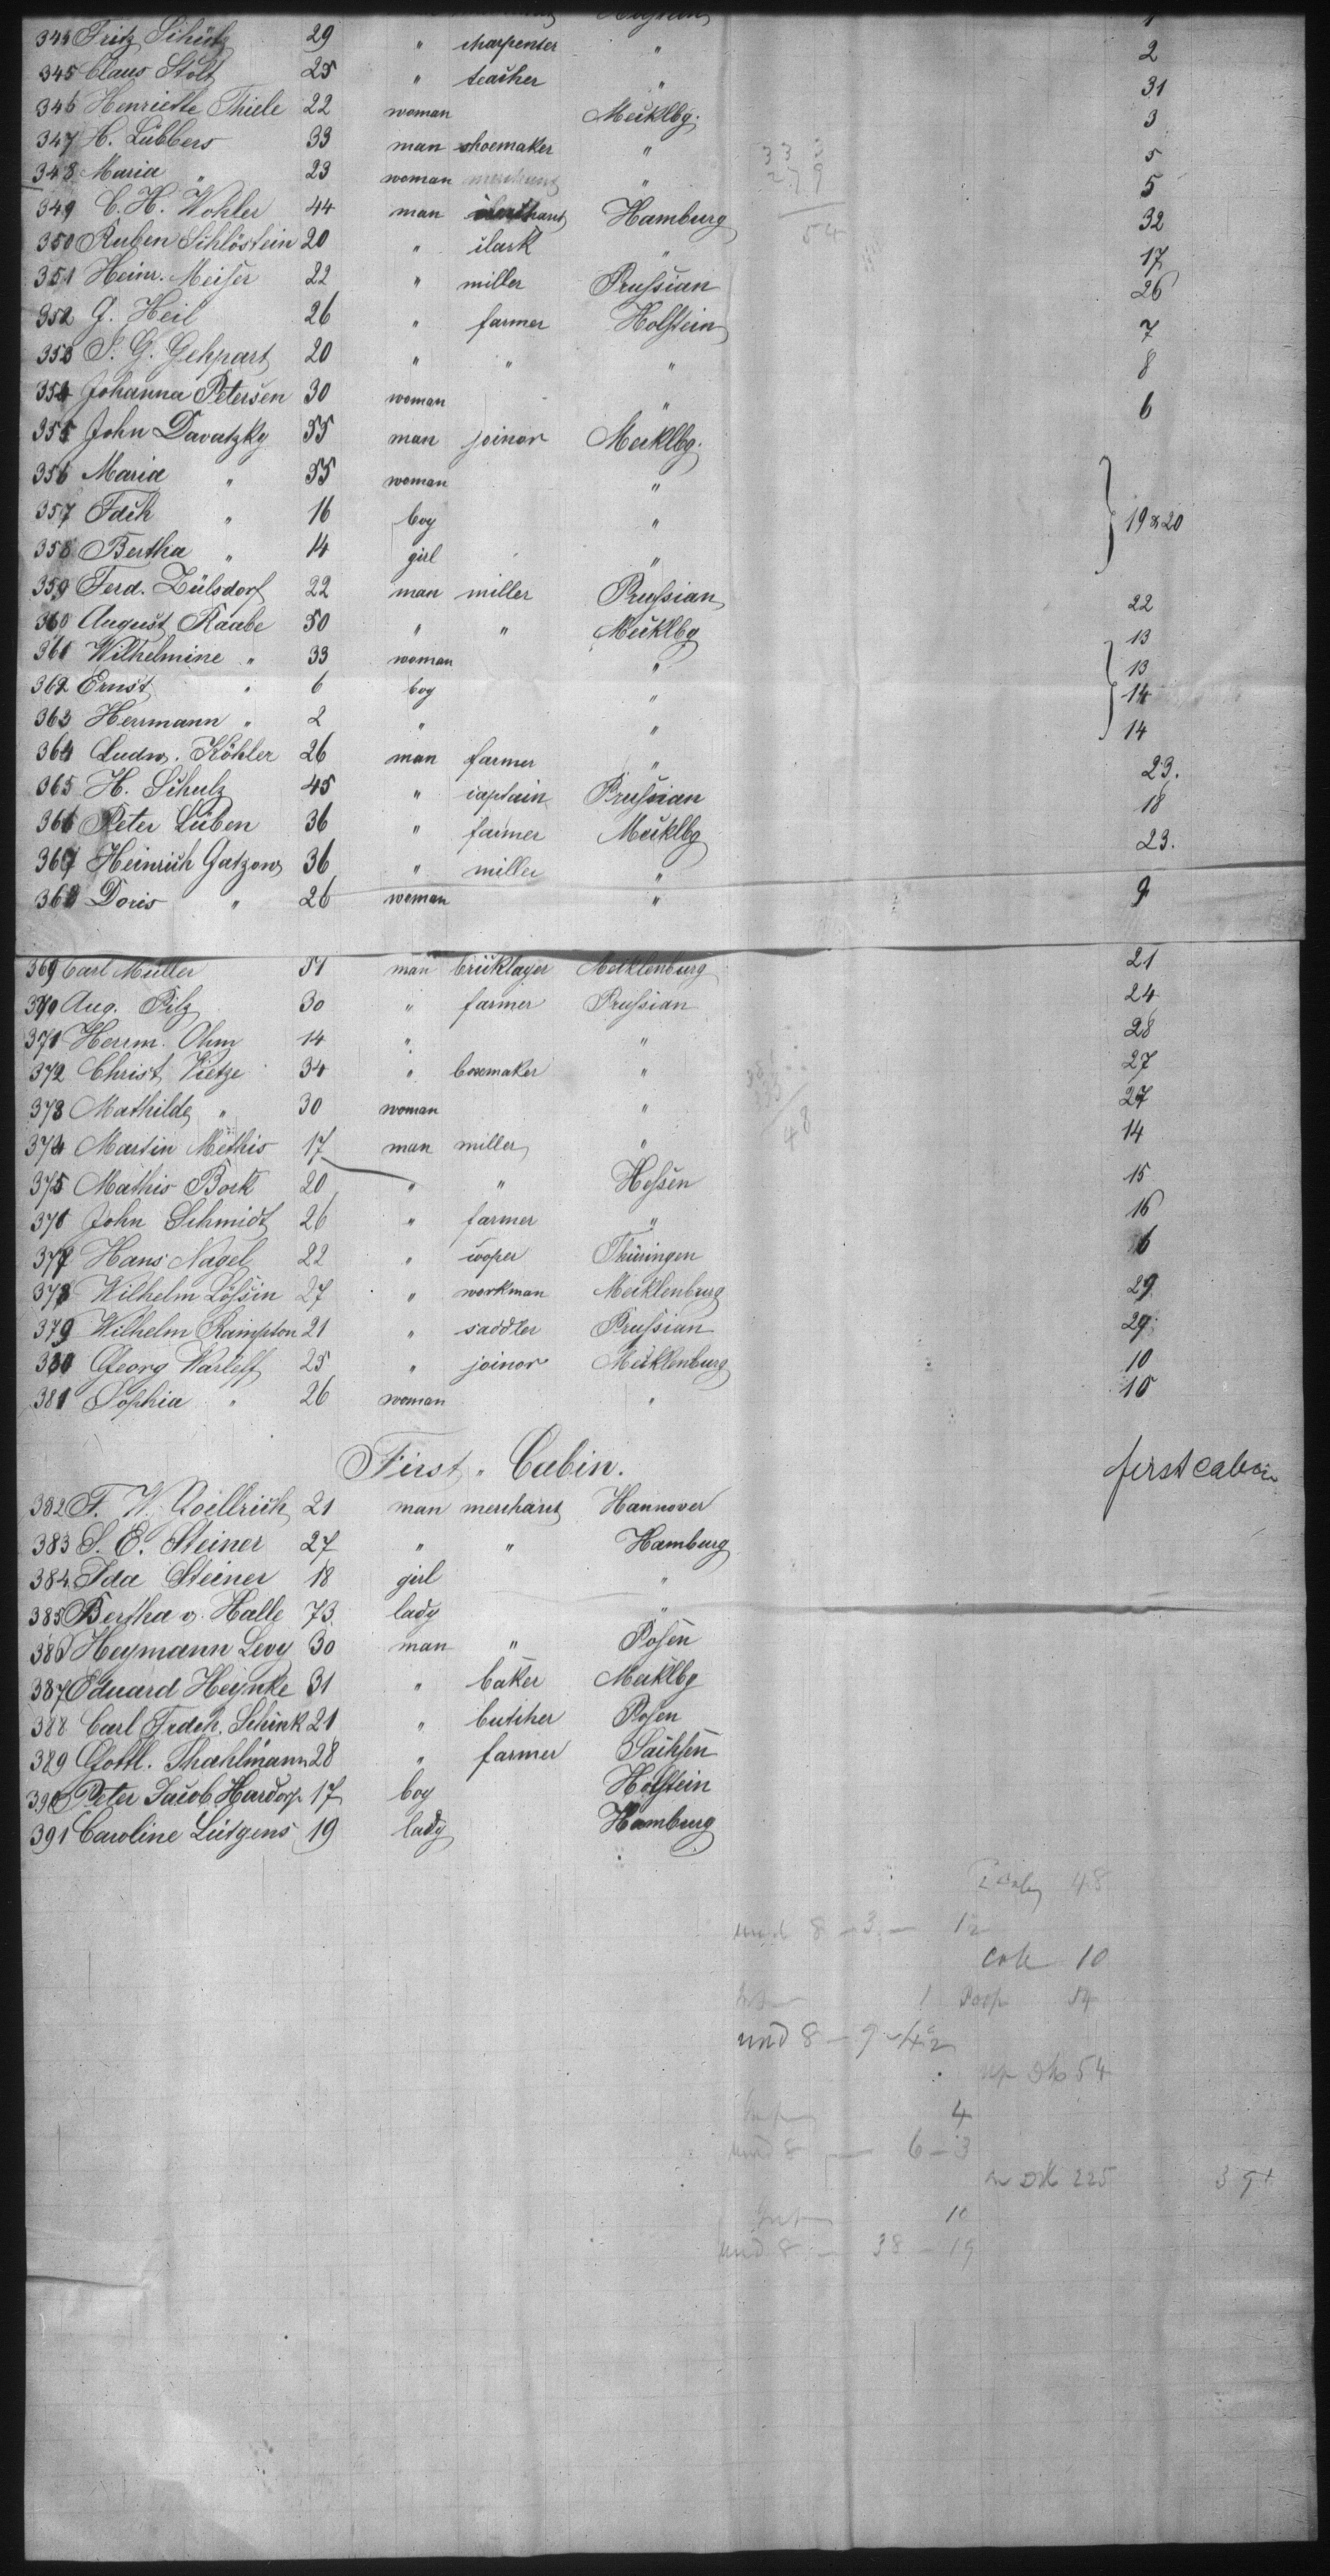 344 Fritz Schütz 29 " charpenter " 2
345 Claus Stolt 25 " teacher " 31
346 Henriette Thiele 22 woman Mecklbg. 3
347 H. Lübbers 33 man shoemaker " 5
348 Maria " 23 woman " 5
349 C. H. Wohler 44 man merchant Hamburg 32
350 Ruben Schlöstein 20 " clark " 17
351 Heinr. Meiser 22 " miller Prussian 26
352 G. Heil 26 " farmer Holstein 7
353 S. G. Gehpart 20 " " " 8
354 Johanna Petersen 30 woman " 6
355 John Davatzky 55 man joinor Mecklbg.
356 Maria " 55 woman "
357 Fdch " 16 boy " 19 & 20
358 Bertha " 14 girl "
359 Ferd. Zülsdorf 22 man miller Prussian 22
360 August Raabe 50 " " Mecklbg 13
361 Wilhelmine " 33 woman " 13
362 Ernst " 6 boy " 14
363 Herrmann " 2 " " 14
364 Ludw. Köhler 26 man farmer " 23.
365 H. Schulz 45 " captain Prussian 18
366 Peter Lüben 36 " farmer Mecklbg 23.
367 Heinrich Gatzow 36 " miller "
368 Doris " 26 woman " 9
369 Carl Müller 51 man bricklayer Mecklenburg 21
370 Aug. Pilz 30 " farmer Prussian 24
371 Herrm. Ohm 14 " " 28
372 Christ. Vietze 34 " boxemaker " 27
373 Mathilde " 30 woman " 27
374 Martin Methis 17 man miller " 14
375 Mathis Bork 20 " " Hessen 15
376 John Schmidt 26 " farmer " 16
377 Hans Nagel 22 " cooper Thüringen 6
378 Wilhelm Lössin 27 " workman Mecklenburg 29
379 Wilhelm Rampton 21 " saddler Prussian 29
380 Georg Warleff 25 " joinor Mecklenburg 10
381 Sophia " 26 woman " 10
First " Cabin. first cabin
382 F. W. 21 man merchant Hannover
383 S. E. Steiner 27 " " Hamburg
384 Ida Steiner 18 girl "
385 Bertha v. Halle 73 lady "
386 Heymann Levy 30 man " Posen
387 Eduard Heynke 31 " baker Mecklbg
388 Carl Frdch. Schink 21 " butcher Posen
389 Gottl. Thaehlmann 28 " farmer Sachsen
390 Peter Jacob Hardorp 17 boy Holstein
391 Caroline Lütgens 19 lady Hamburg
48
und 8 - 3 - 1½
10
1 Poop 54
und 8 - 9 - 4½
54
4
und 8 - 6 - 3
225 391
10
und 8 - 38 - 19